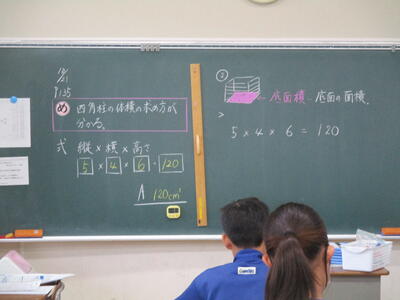 12/21
P135
め 四角柱の体積の求め方が
分かる。
式 縦×横×高さ
5 × 4 × 6 = 120
A 120cm³
底面積…底面の面積。
5 × 4 × 6 = 120